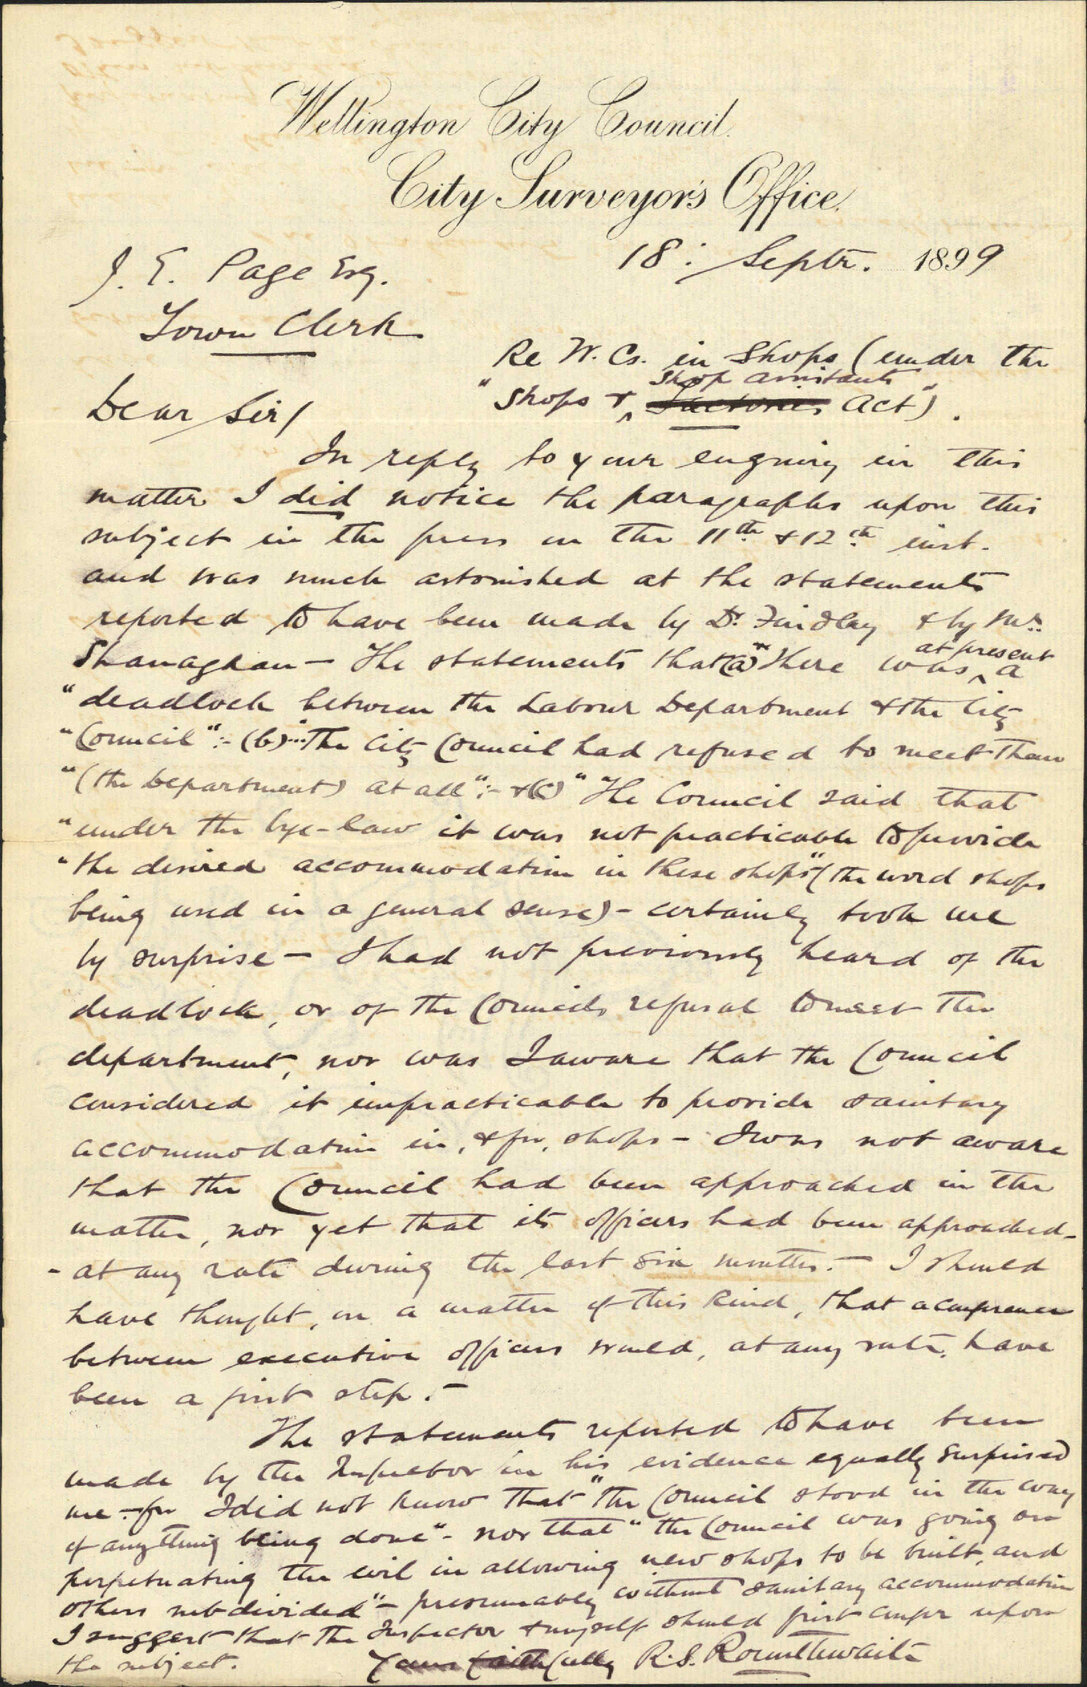 Wellington City Council.
City Surveyor's Office.
18: Septr. 1899
J. E. Page Esq.
Town Clerk
Re W. Cs. in Shops (under the
"Shops & Shop Assistants Factories Act").
Dear Sir/
In reply to your enquiry in this
matter I did notice the paragraphs upon this
subject in the press on the 11th & 12th inst.
and was much astonished at the statements
reported to have been made by Dr. Findlay & by Mr.
Shanaghan – The statements that (a) "There was at present a
"deadlock between the Labour Department & the City
"Council":- (b) "The City Council had refused to meet them
"(the Department) at all":- & (c) "The Council said that
"under the bye-law it was not practicable to provide
"the desired accommodation in these shops" (the word shops
being used in a general sense) - certainly took me
by surprise – I had not previously heard of the
deadlock, or of the Councils refusal to meet the
department, nor was I aware that the Council
considered it impracticable to provide sanitary
accommodation in, & for, shops – I was not aware
that the Council had been approached in the
matter, nor yet that its officers had been approached -
- at any rate during the last six months. – I should
have thought, in a matter of this kind, that a conference
between executive officers would, at any rate, have
been a first step. –
The statements reported to have been
made by the Inspector in his evidence equally surprised
me - for I did not know that "the Council stood in the way
of anything being done" - nor that "the Council was going on
perpetuating the evil in allowing new shops to be built, and
others subdivided" - presumably without sanitary accommodation
I suggest that the Inspector & myself should first confer upon
the subject.
Yours faithfully R. S. Rounthwaite